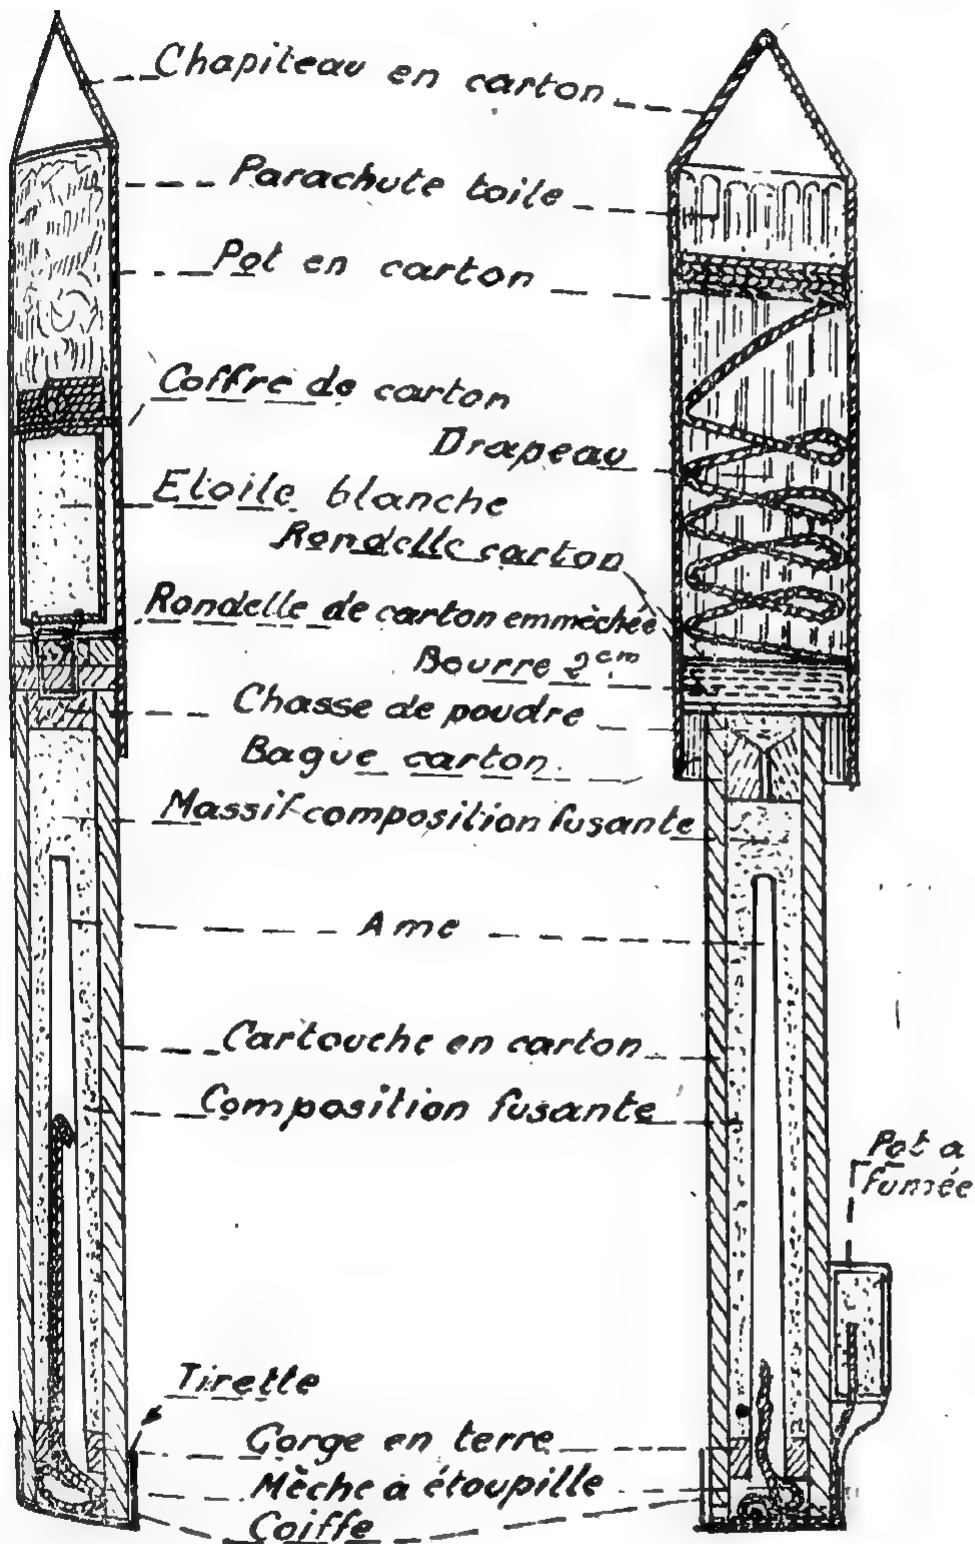 Chapiteau en carton
Parachute toile
Pot en carton
Coffre de carton
Drapeau
Etoile blanche
Rondelle carton
Rondelle de carton emmèchée
Bourre 2cm
Chasse de poudre
Bague carton
Massif composition fusante
Ame
Cartouche en carton
Composition fusante
Pot a
fumée
Tirette
Gorge en terre
Mèche à étoupille
Coiffe